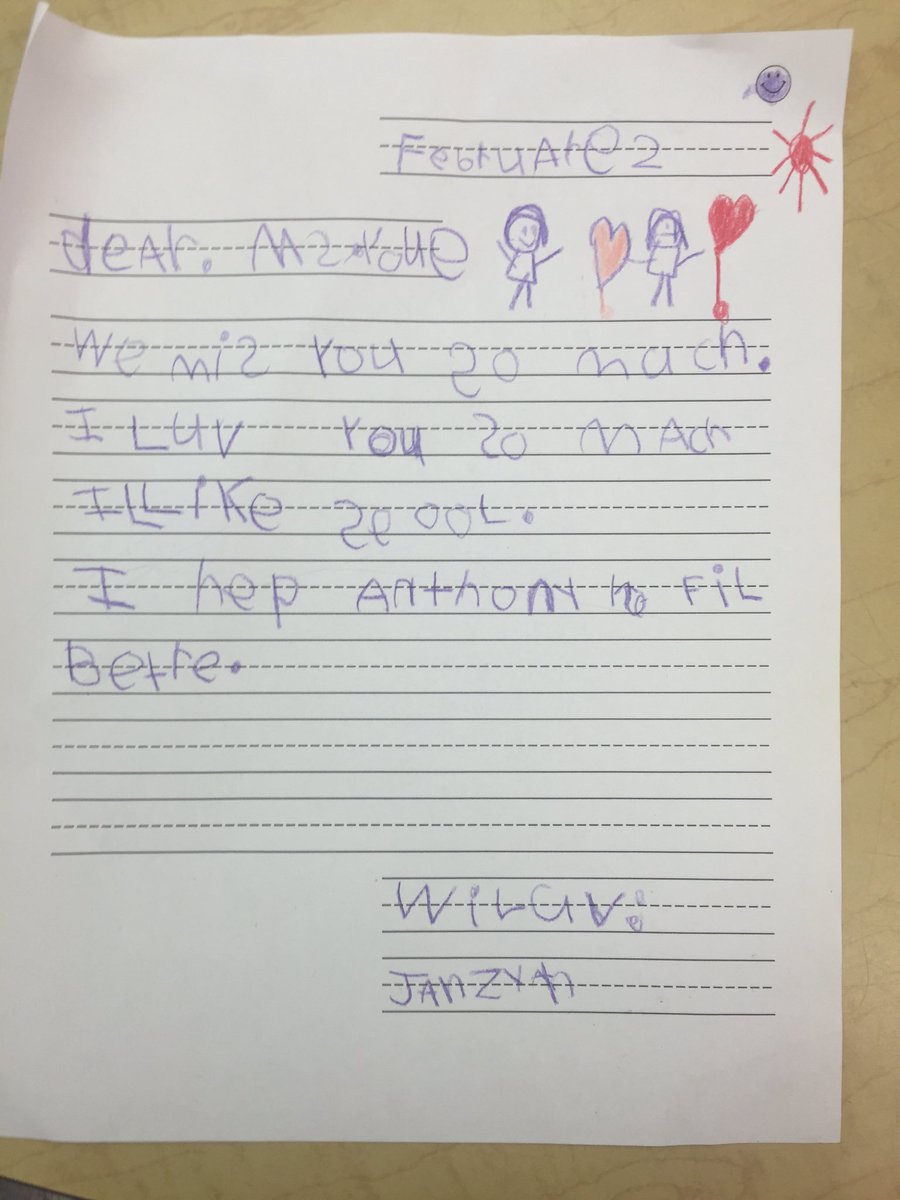 FebruAre 2
dear. Mz
We mis you so mach.
I Luv you so mAch
I LLike scooL.
I hep Anthony to FiL
Bettre.
Wi Luv:
JAnzyAh